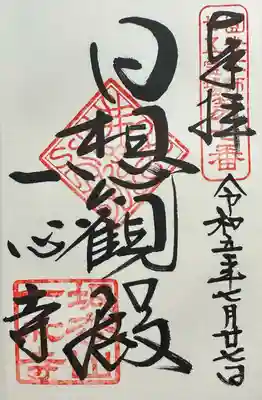 奉拝
令和五年七月廿七日
日想観殿
一心寺